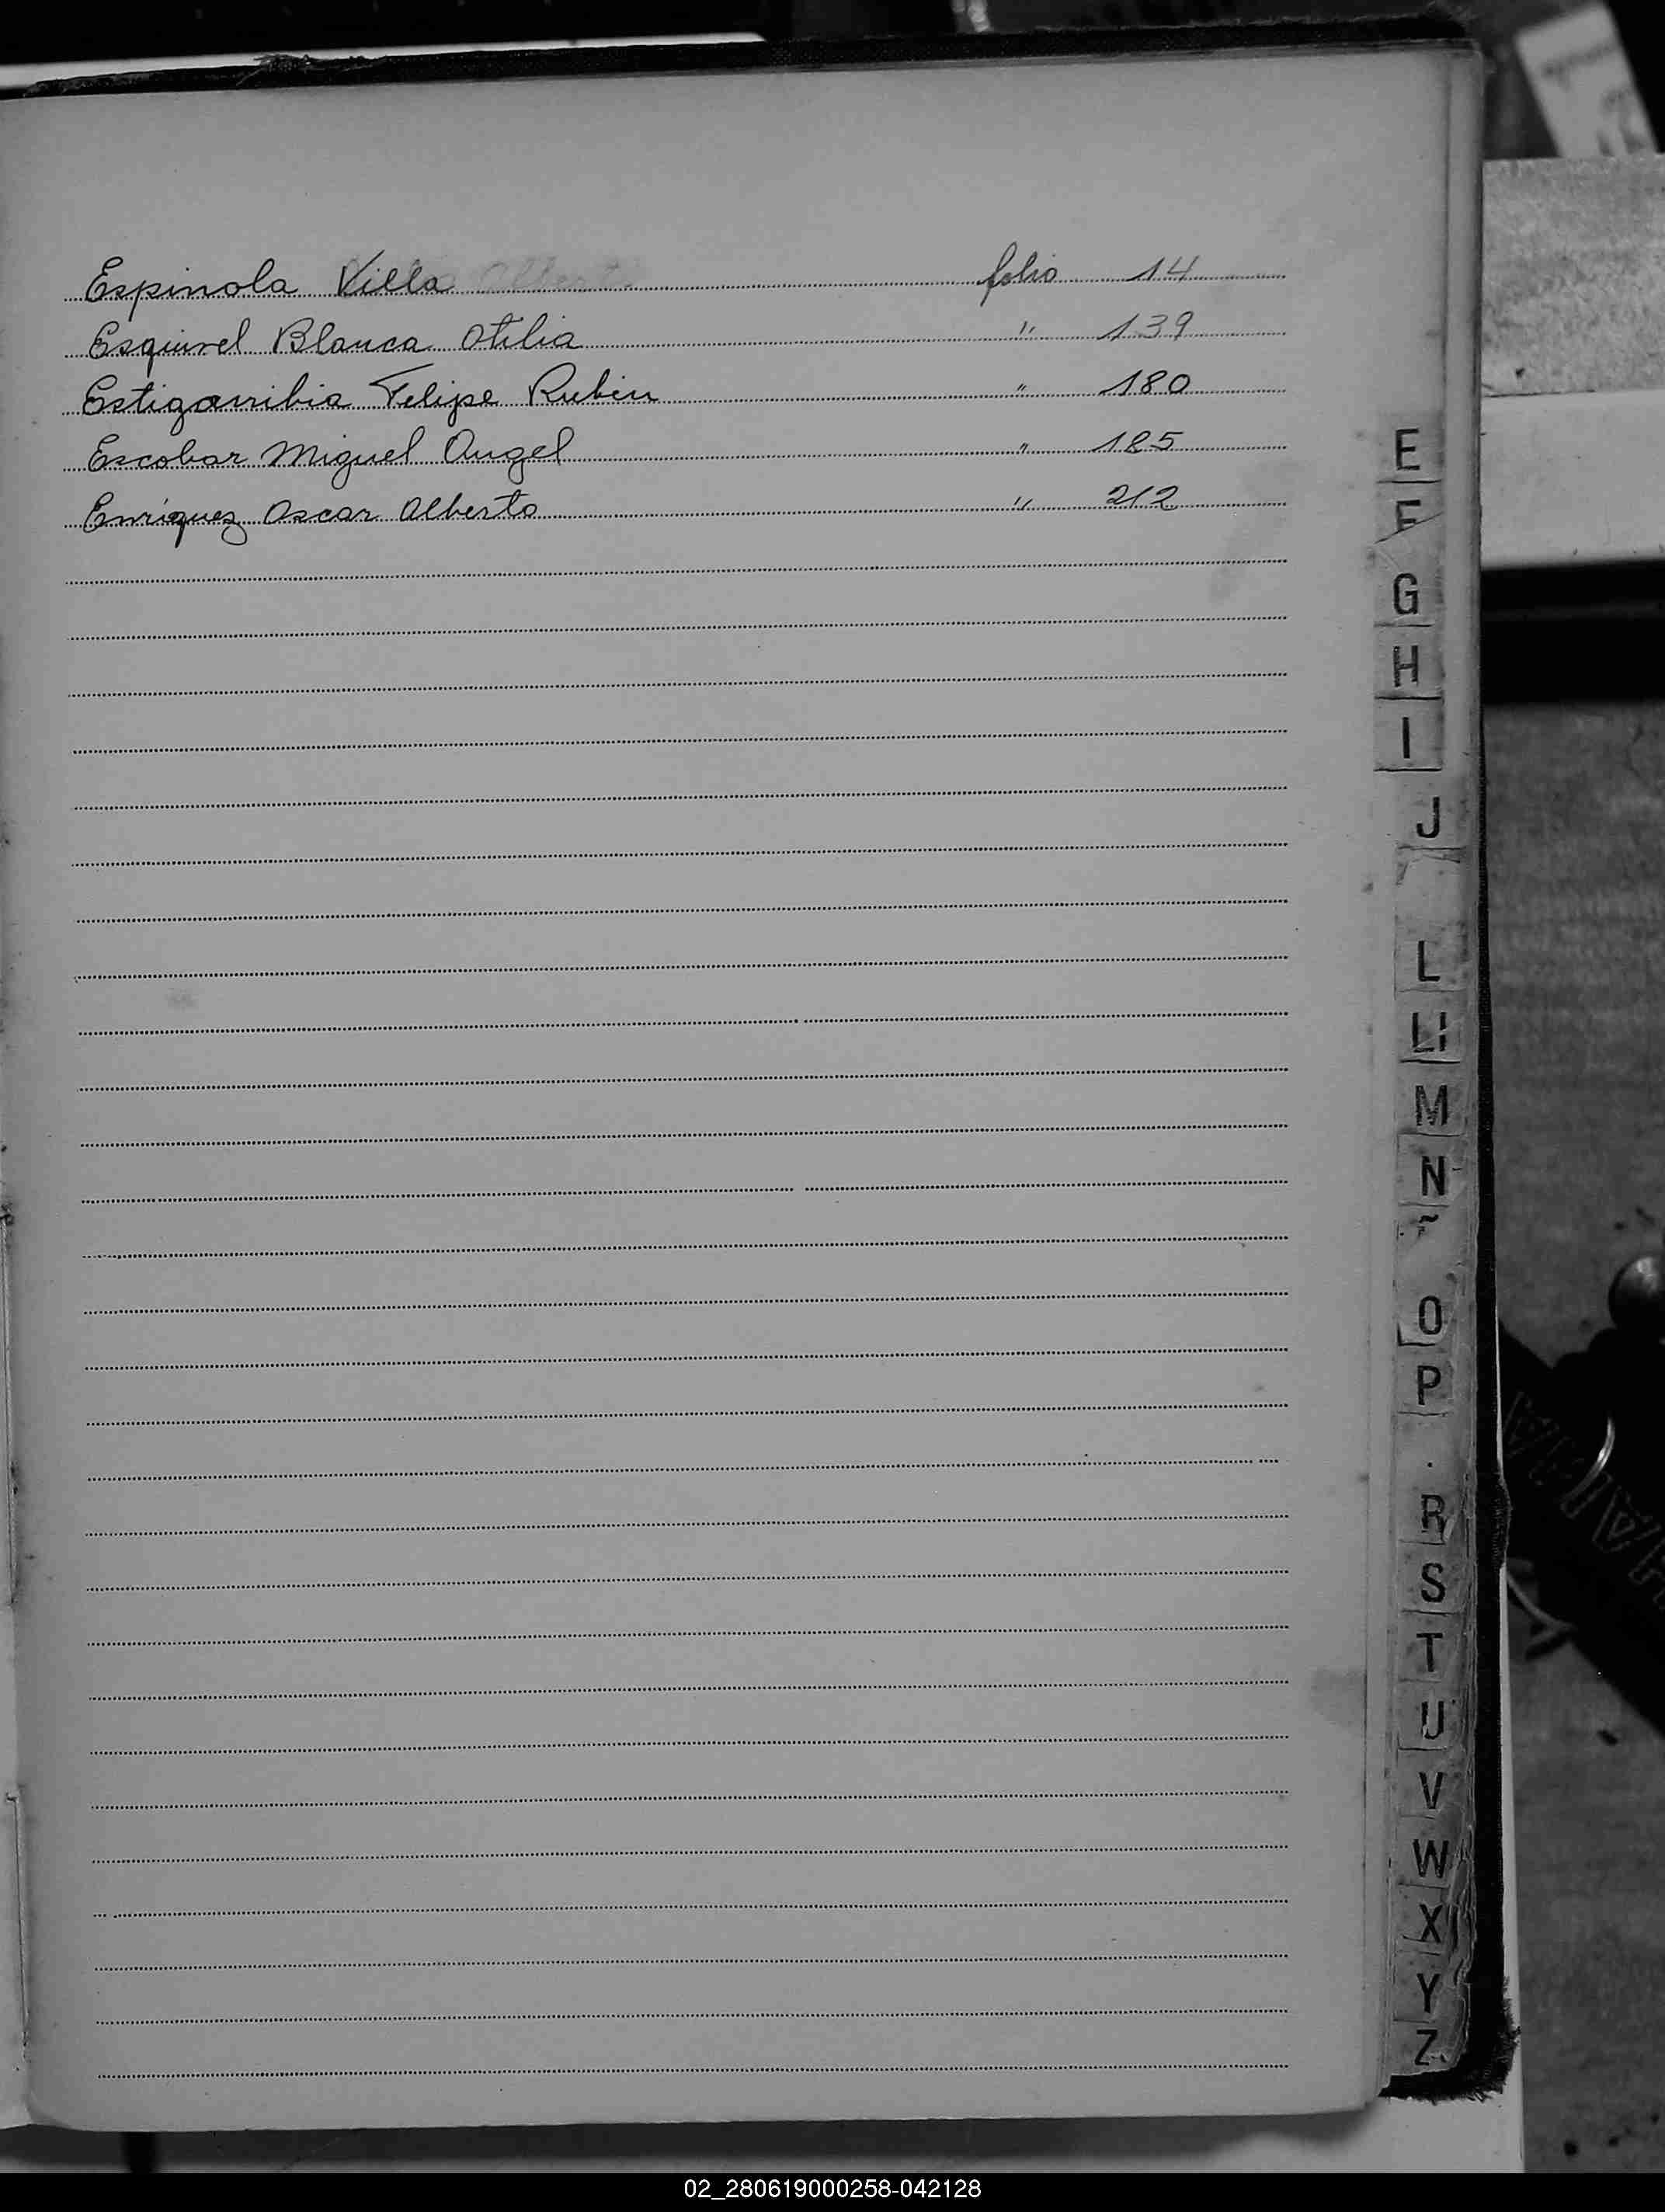 Espinola Villa folio 14
Esquivel Blanca Otilia " 139
Estigarribia Felipe Rubén " 180
Escobar Miguel Angel " 185
Enríquez Oscar Alberto " 212
E
F
G
H
I
J
L
M
N
O
P
R
S
T
U
V
W
X
Y
Z
02_280619000258-042128